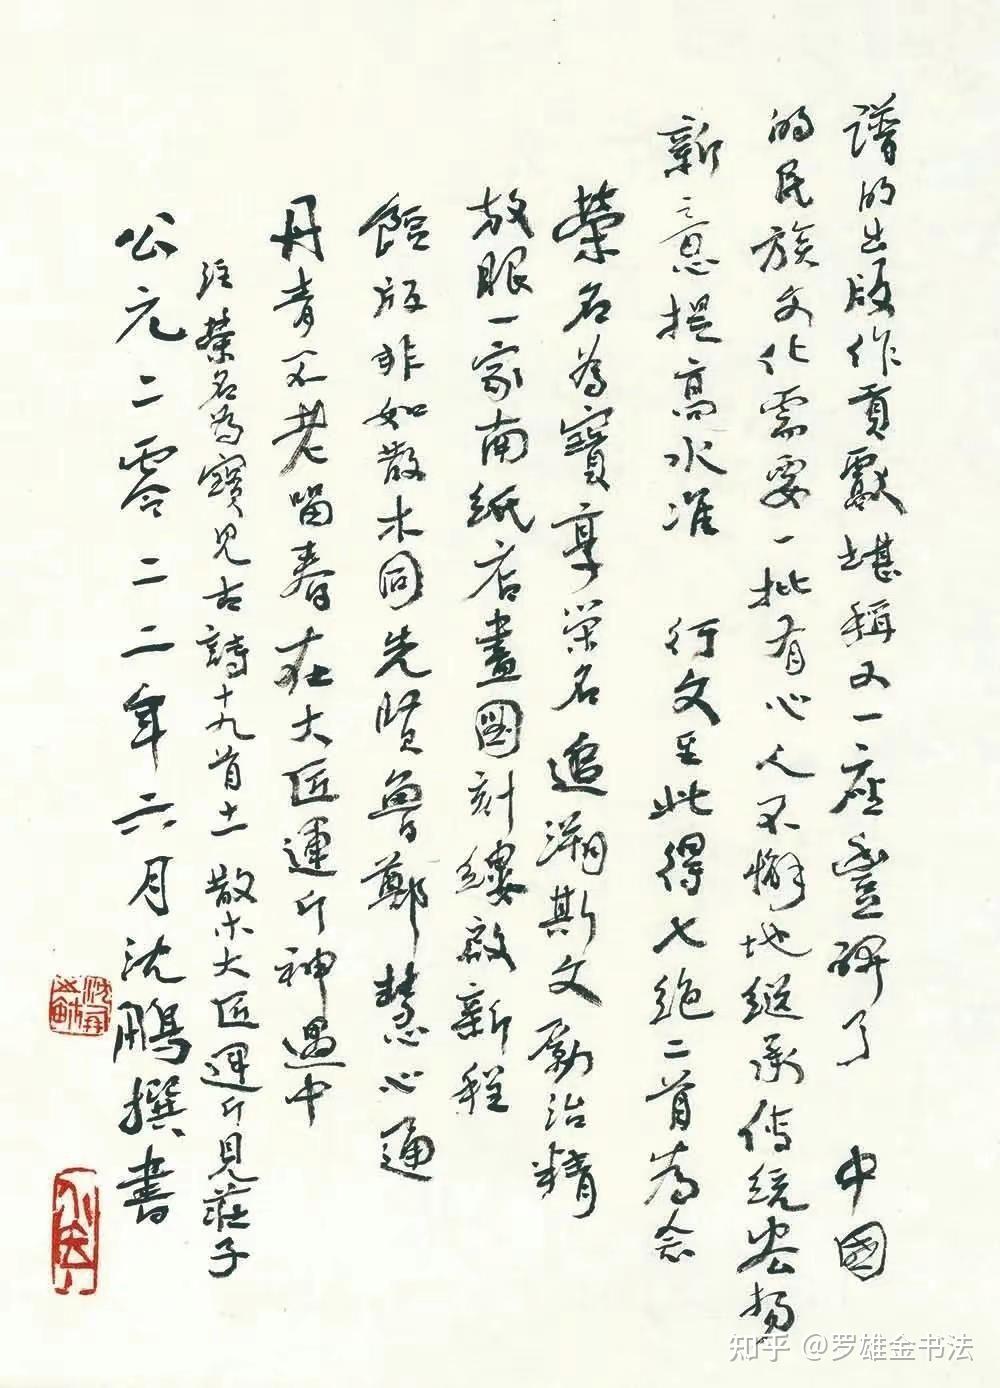 譜的出版作貢獻堪稱又一座豐碑了 中國
的民族文化需要一批有心人不懈地繼承傳統發揚
新意提高水准 行文至此得七絶二首為念
榮名為寶享榮名追溯斯文勵治精
放眼一家南紙店畫圖刻縷啟新程
餖版非如散木同先賢魯鄭慧心通
丹青不老留春在大匠運斤神遇中
注榮名為寶見古詩十九首十一 散木大匠運斤見莊子
公元二零二二年六月沈鵬撰書
知乎 @罗雄金书法